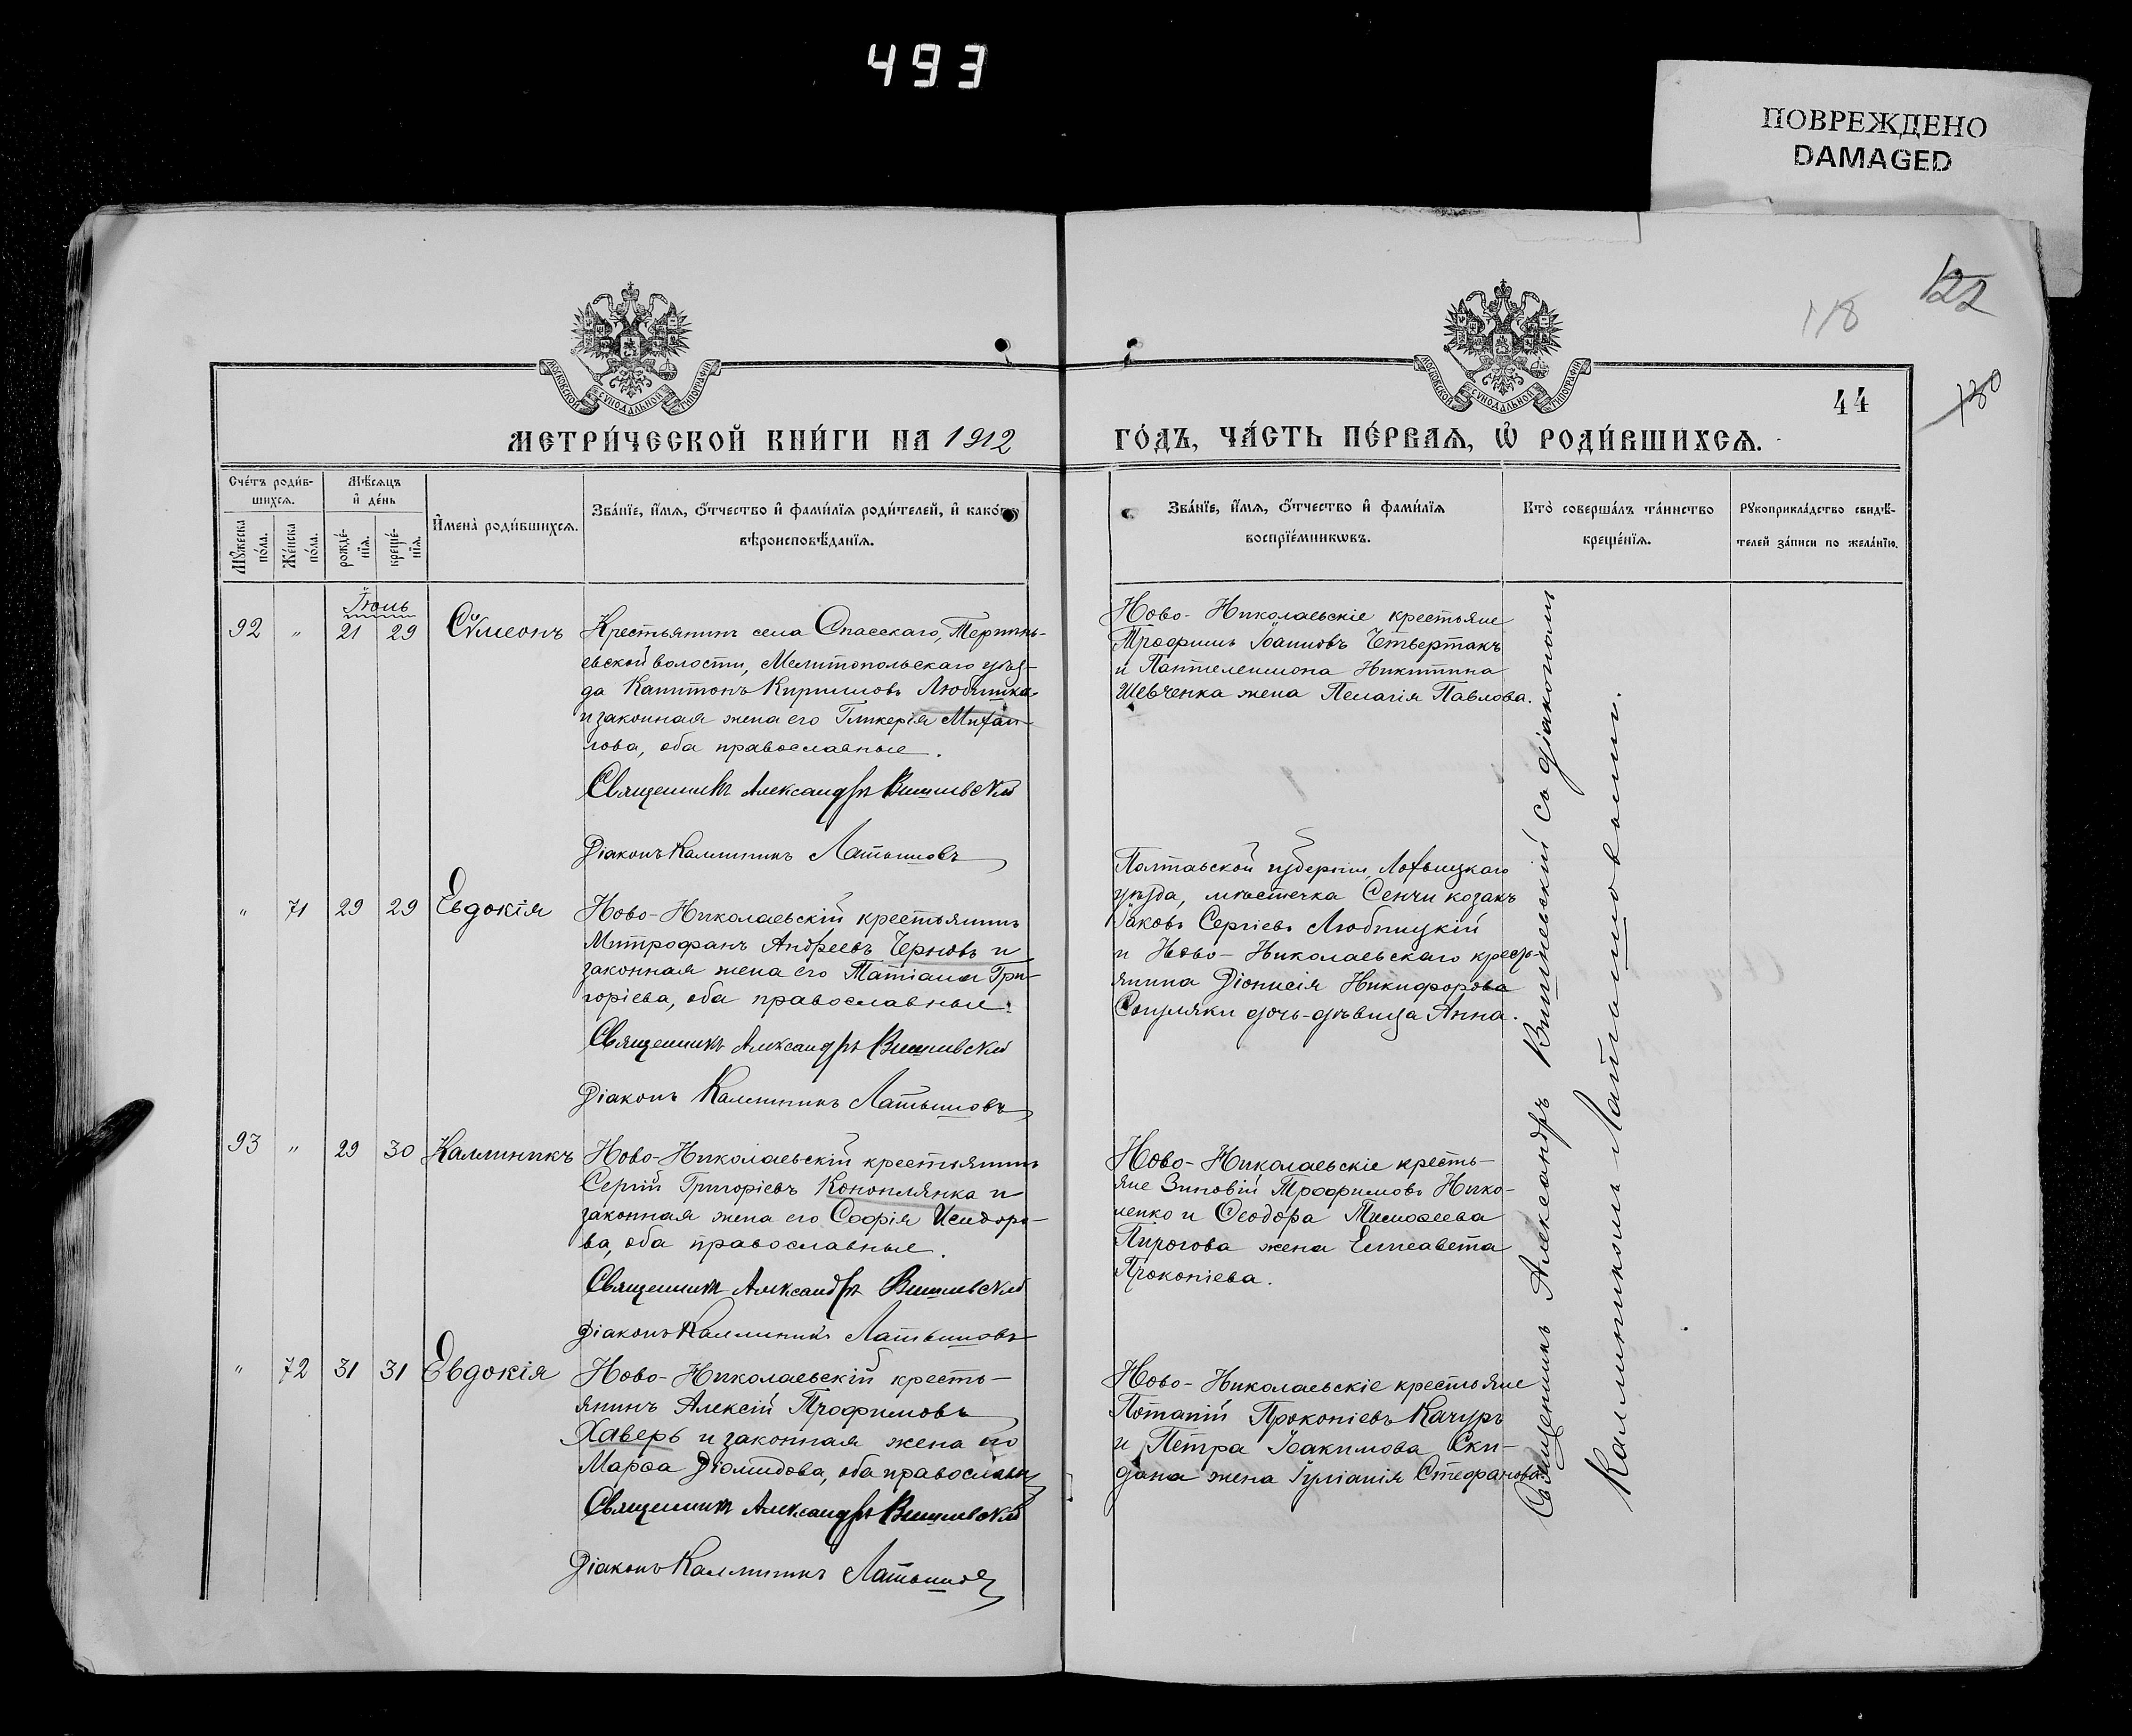 493
ПОВРЕЖДЕНО
DAMAGED
122
118
130
44
МОСКОВСКОЙ СѴНОДАЛЬНОЙ ТИПОГРАФІИ
МОСКОВСКОЙ СѴНОДАЛЬНОЙ ТИПОГРАФІИ
МЕТРИ́ЧЕСКОЙ КНИ́ГИ НА 1912
ГО́ДЪ, ЧА́СТЬ ПЕ́РВАѦ, Ѡ҆ РОДИ́ВШИХСѦ.
Сче́тъ роди́в-
шихсѧ.
Мꙋжеска по́ла.
Же́нска по́ла.
Мѣ́сѧцъ
и҆ де́нь
рожде́-
нїѧ.
креще́-
нїѧ.
И҆мена̀ роди́вшихсѧ.
Зва́нїе, и҆́мѧ, ѻ҆́тчество и҆ фами́лїѧ роди́телей, и҆ како́гѡ
вѣроисповѣ́данїѧ.
Зва́нїе, и҆́мѧ, ѻ҆́тчество и҆ фами́лїѧ
воспрїе́мникѡвъ.
Кто̀ соверша́лъ та́инство
креще́нїѧ.
Рꙋкоприкла́дство свидѣ́-
телей за́писи по жела́нїю.
Іюль
92 " 21 29 Сѵмеонъ
Крестьянинъ села Спасскаго, Терпѣнь-
евской волости, Мелитопольскаго уѣз-
да Капитонъ Кирилловъ Любчика
и законная жена его Гликерія Михаи-
лова, оба православные.
Священникъ Александръ Вишневскій
Діаконъ Каллиникъ Латышовъ
Ново-Николаевскіе крестьяне
Трофимъ Іоанновъ Четвертакъ
и Пантелеимона Никитина
Шевченка жена Пелагія Павлова.
" 71 29 29 Евдокія
Ново-Николаевскій крестьянинъ
Митрофанъ Андреевъ Черновъ и
законная жена его Татіана Гри-
горіева, оба православные.
Священникъ Александръ Вишневскій
Діаконъ Каллиникъ Латышовъ
Полтавской губерніи, Лохвицкаго
уѣзда, мѣстечка Сенчи козакъ
Іаковъ Сергіевъ Любицкій
и Ново-Николаевскаго кресть-
янина Діонисія Никифорова
дочь-дѣвица Анна.
93 " 29 30 Каллиникъ
Ново-Николаевскій крестьянинъ
Сергій Григоріевъ Коноплянка и
законная жена его Софія Исидоро-
ва, оба православные.
Священникъ Александръ Вишневскій
Діаконъ Каллиникъ Латышовъ
Ново-Николаевскіе кресть-
яне Зиновій Трофимовъ Нико-
ленко и Ѳеодора Тимоѳеева
Пирогова жена Елисавета
Прокопіева.
" 72 31 31 Евдокія
Ново-Николаевскій кресть-
янинъ Алексій Трофимовъ
Хаверь и законная жена его
Марѳа Діомидова, оба православн.
Священникъ Александръ Вишневскій
Діаконъ Каллиникъ Латышовъ
Ново-Николаевскіе крестьяне
Потапій Прокопіевъ Качуръ
и Петра Іоакимова Ски-
дана жена Іуліанія Стефанова.
Священникъ Александръ Вишневскій съ діакономъ
Каллиникомъ Латышовымъ.